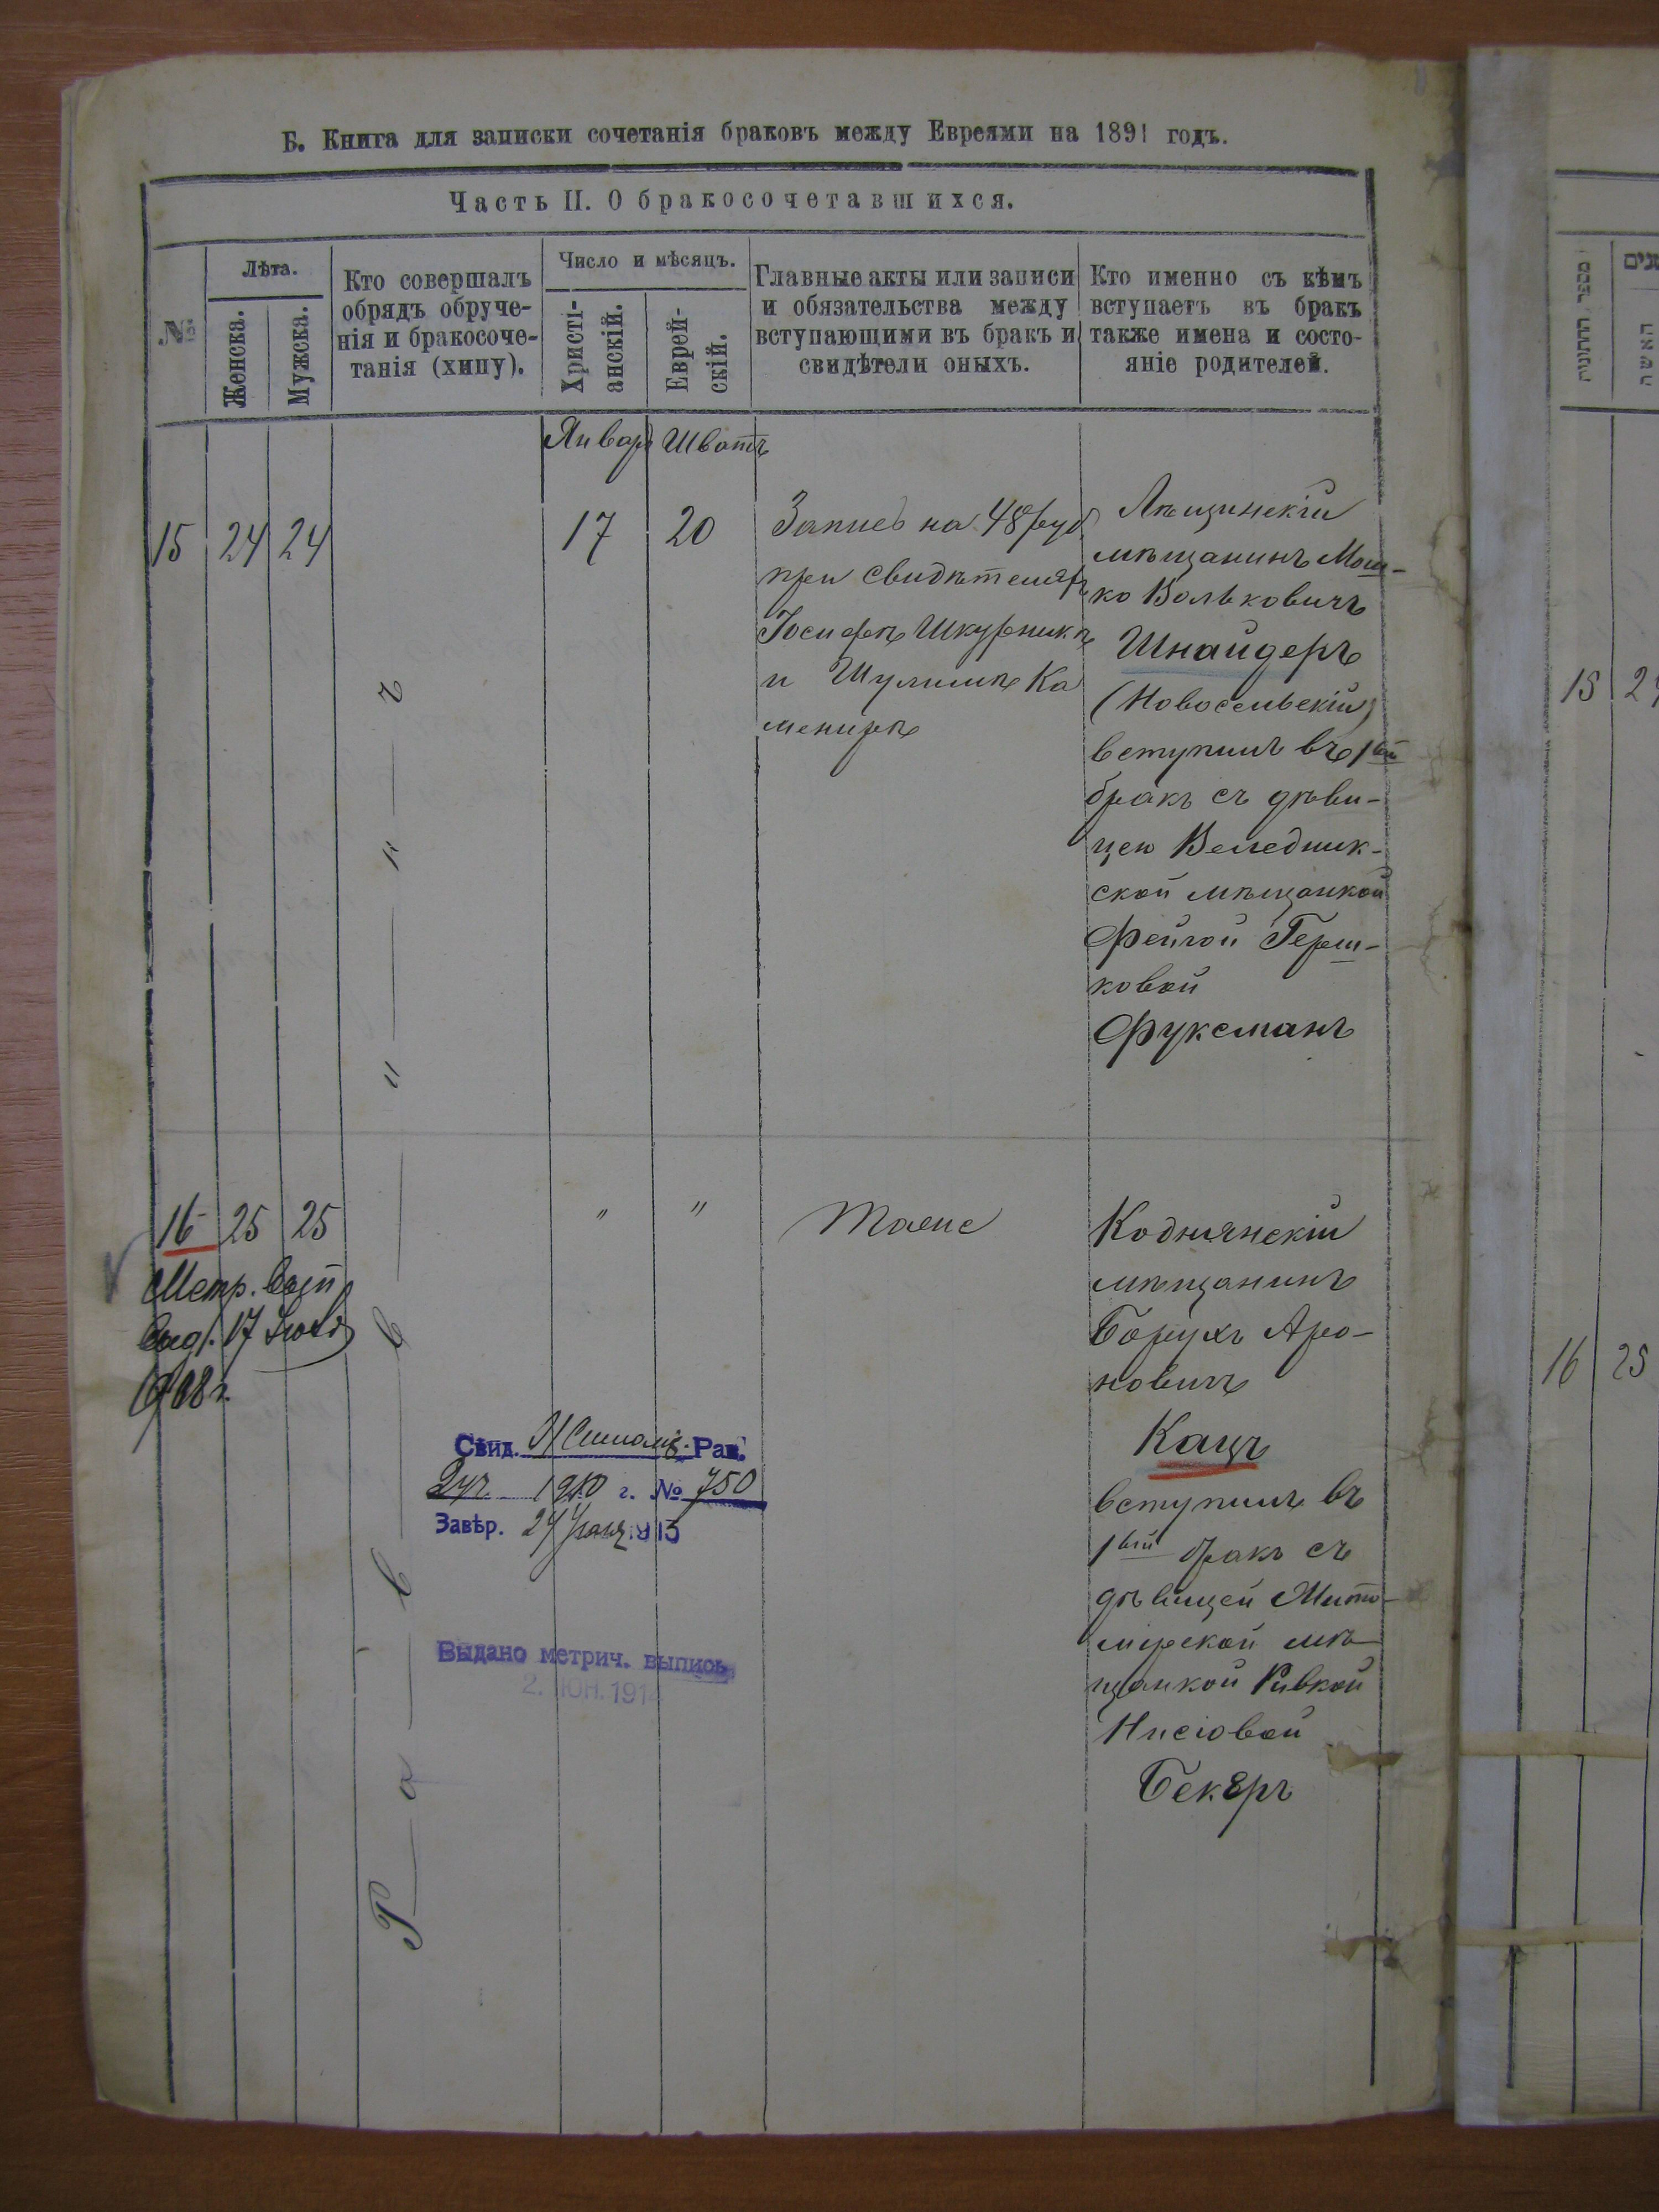 Б. Книга для записки сочетанія браковъ между Евреями на 1891 годъ.
Часть II. О бракосочетавшихся.
№
Лѣта.
Женска.
Мужска.
Кто совершалъ
обрядъ обруче-
нія и бракосоче-
танія (хипу).
Число и мѣсяцъ.
Христі-
анскій.
Еврей-
скій.
Главные акты или записи
и обязательства между
вступающими въ бракъ и
свидѣтели оныхъ.
Кто именно съ кѣмъ
вступаетъ въ бракъ
также имена и состо-
яніе родителей.
Январ Шватъ
15 24 24
Раввинъ
17 20
Запись на 48 руб
при свидѣтеляхъ
Іосифѣ Шкурникѣ
и Шулимѣ Ка
менирѣ
мѣщанинъ Мош-
ко Вольковичъ
Шнайдеръ
(Новосельскій)
вступилъ въ 1ый
бракъ съ дѣви-
цею Веледник-
ской мѣщанкой
Фейгой Герш-
ковой
Фуксманъ
16 25 25
Метр.
17
1908 г.
" "
Тоже
Коднянскій
мѣщанинъ
Борухъ Аро-
новичъ
Кацъ
вступилъ въ
1ый бракъ съ
дѣвицей Жито-
мірской мѣ-
щанкой Ривкой
Нисіовой
Бекеръ
Свид. Рав.
1910 г. № 750
Завѣр. 24 1913
Выдано метрич. выпись
2. ІЮН. 191
מספר החתונות
שנים
האשה
15 24
16 25